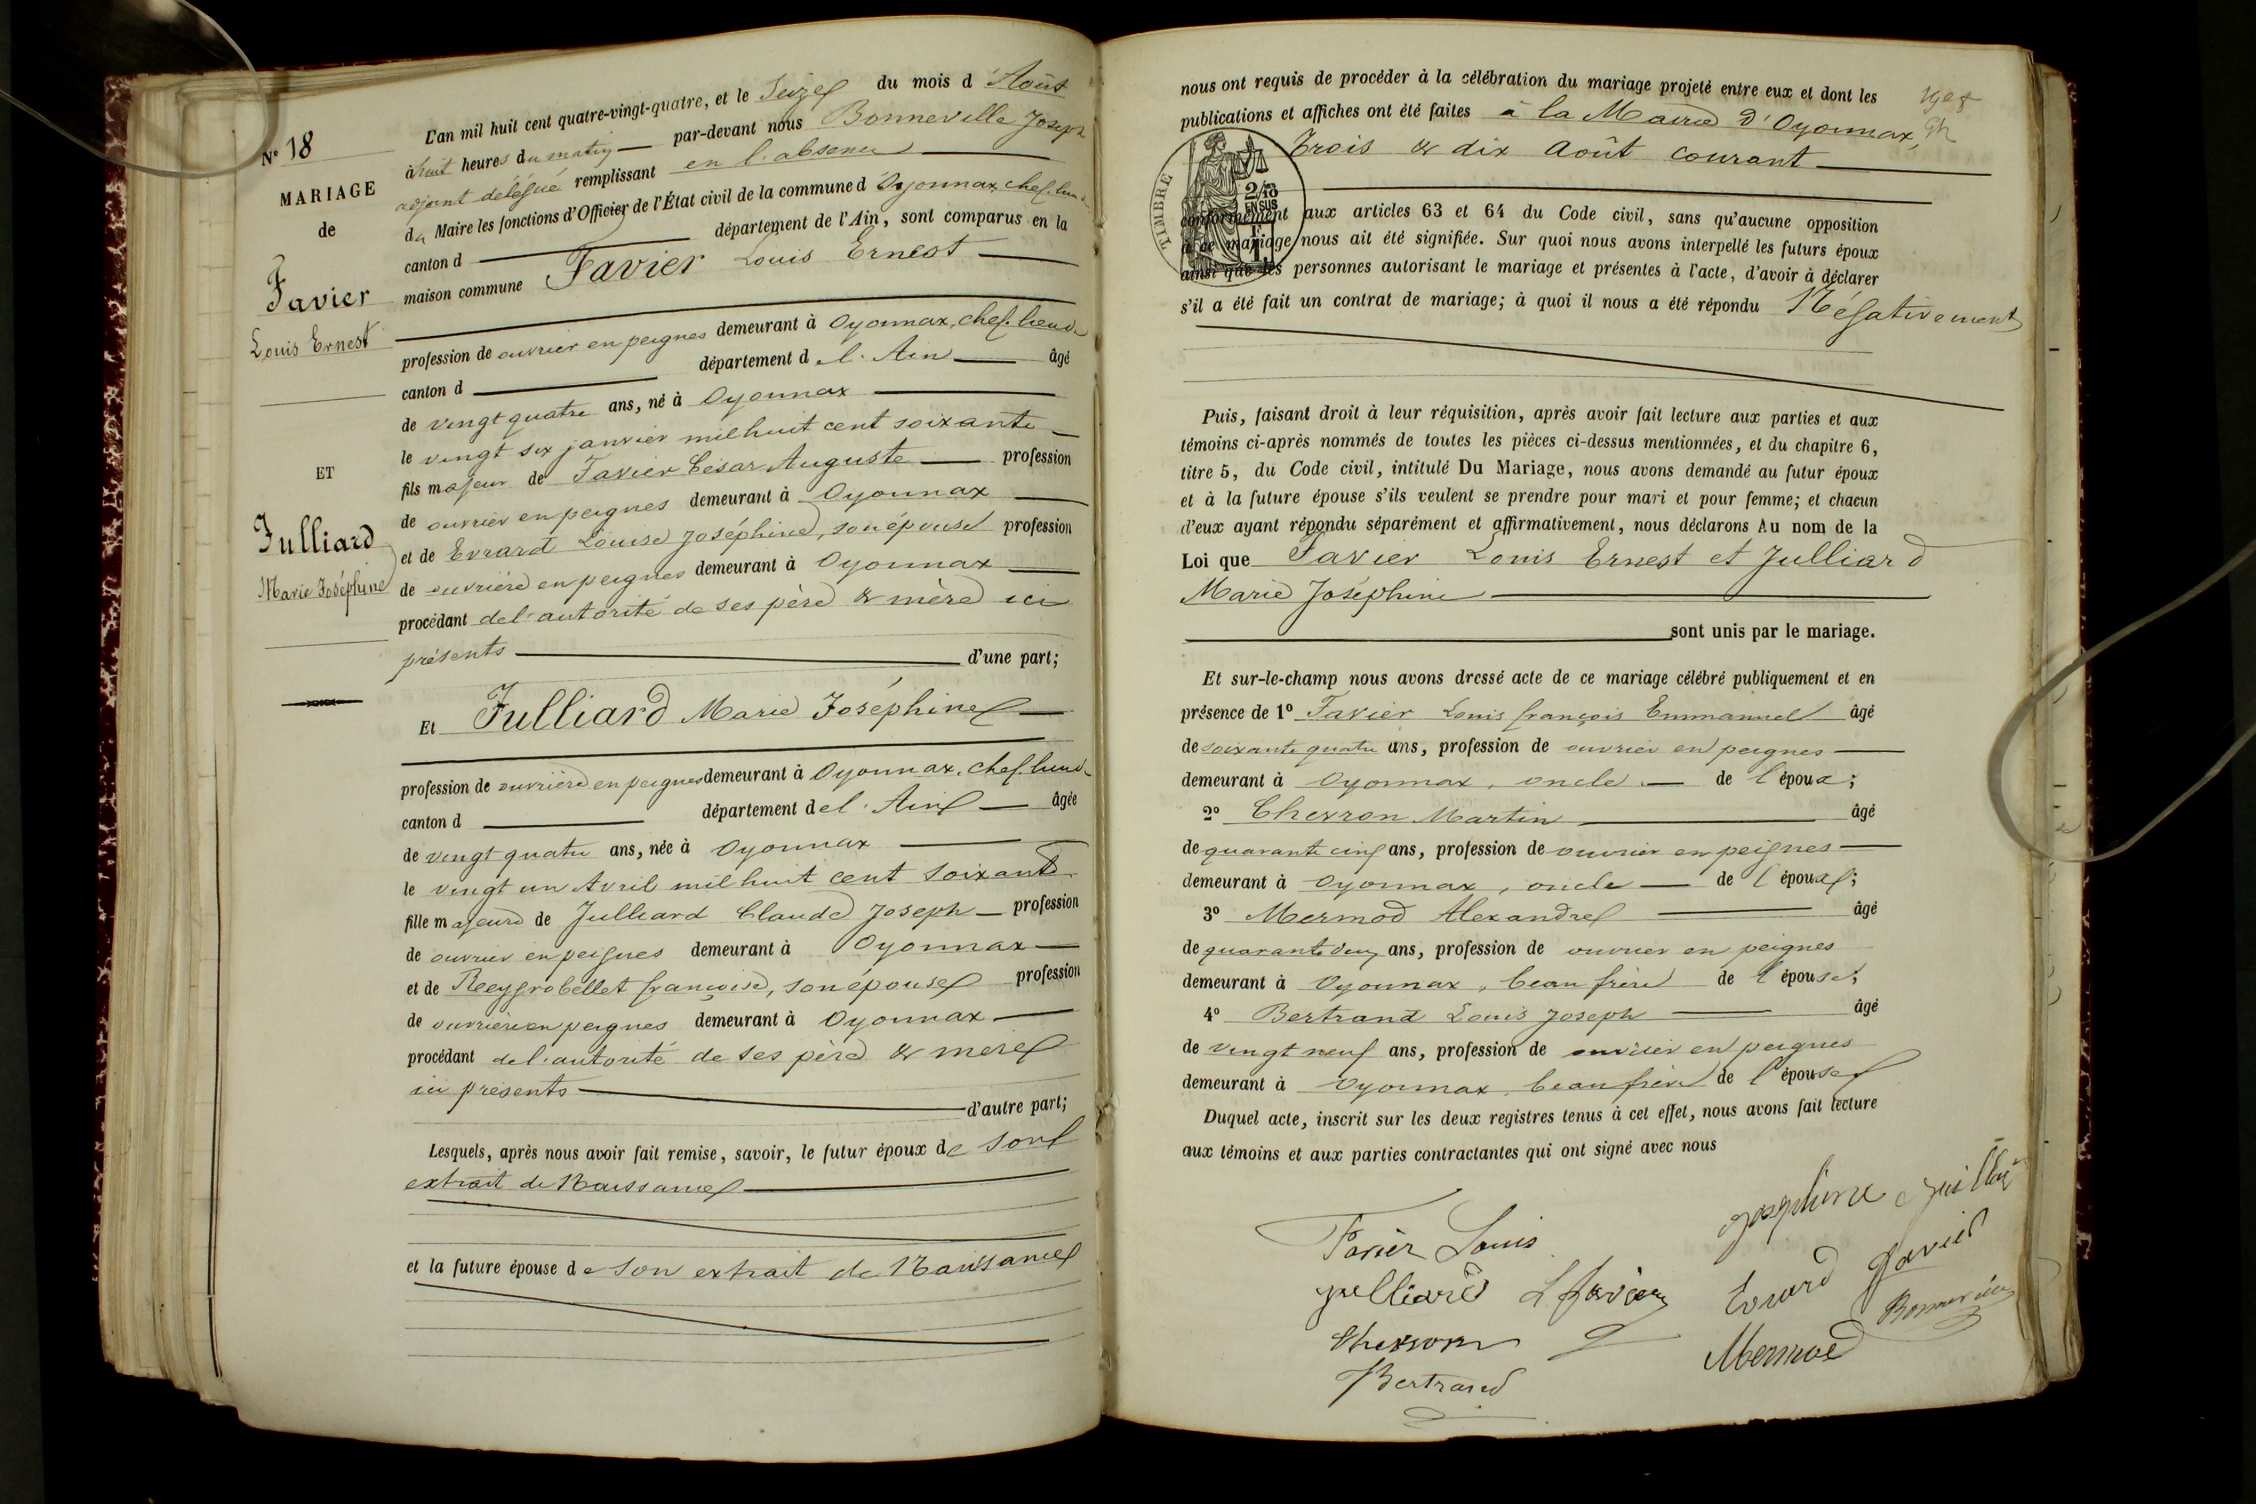 N° 18
MARIAGE
de
Favier
Louis Ernest
ET
Julliard
Marie Joséphine
L'an mil huit cent quatre-vingt-quatre, et le Seize du mois d'Août
à huit heures du matin par-devant nous Bonneville Joseph
adjoint délégué remplissant en l'absence
du Maire les fonctions d'Officier de l'État civil de la commune d'Oyonnax, chef-lieu de
canton d département de l'Ain, sont comparus en la
maison commune Favier Louis Ernest
profession de ouvrier en peignes demeurant à Oyonnax, chef-lieu de
canton d département de l'Ain âgé
de vingt quatre ans, né à Oyonnax
le vingt six janvier mil huit cent soixante
fils majeur de Favier César Auguste profession
de ouvrier en peignes demeurant à Oyonnax
et de Evrard Louise Joséphine, son épouse profession
de ouvrière en peignes demeurant à Oyonnax
procédant de l'autorité de ses père & mère ici
présents d'une part;
Et Julliard Marie Joséphine
profession de ouvrière en peignes demeurant à Oyonnax, chef-lieu de
canton d département de l'Ain âgée
de vingt quatre ans, née à Oyonnax
le vingt un Avril mil huit cent soixante
fille majeure de Julliard Claude Joseph profession
de ouvrier en peignes demeurant à Oyonnax
et de Reygrobellet françoise, son épouse profession
de ouvrière en peignes demeurant à Oyonnax
procédant de l'autorité de ses père & mère
ici présents d'autre part;
Lesquels, après nous avoir fait remise, savoir, le futur époux de son
extrait de Naissance
et la future épouse de son extrait de Naissance
nous ont requis de procéder à la célébration du mariage projeté entre eux et dont les
publications et affiches ont été faites à la Mairie d'Oyonnax,
Trois & dix Août courant
TIMBRE
2/10
EN SUS
conformément aux articles 63 et 64 du Code civil, sans qu'aucune opposition
à ce mariage nous ait été signifiée. Sur quoi nous avons interpellé les futurs époux
ainsi que les personnes autorisant le mariage et présentes à l'acte, d'avoir à déclarer
s'il a été fait un contrat de mariage; à quoi il nous a été répondu Négativement
Puis, faisant droit à leur réquisition, après avoir fait lecture aux parties et aux
témoins ci-après nommés de toutes les pièces ci-dessus mentionnées, et du chapitre 6,
titre 5, du Code civil, intitulé Du Mariage, nous avons demandé au futur époux
et à la future épouse s'ils veulent se prendre pour mari et pour femme; et chacun
d'eux ayant répondu séparément et affirmativement, nous déclarons Au nom de la
Loi que Favier Louis Ernest et Julliard
Marie Joséphine
sont unis par le mariage.
Et sur-le-champ nous avons dressé acte de ce mariage célébré publiquement et en
présence de 1° Favier Louis françois Emmanuel âgé
de soixante quatre ans, profession de ouvrier en peignes
demeurant à Oyonnax, oncle de l'époux;
2° Chevron Martin âgé
de quarante cinq ans, profession de ouvrier en peignes
demeurant à Oyonnax, oncle de l'époux;
3° Mermod Alexandre âgé
de quarante deux ans, profession de ouvrier en peignes
demeurant à Oyonnax, beau frère de l'épouse;
4° Bertrand Louis Joseph âgé
de vingt neuf ans, profession de ouvrier en peignes
demeurant à Oyonnax, beau frère de l'épouse
Duquel acte, inscrit sur les deux registres tenus à cet effet, nous avons fait lecture
aux témoins et aux parties contractantes qui ont signé avec nous
Favier Louis
Josephine
julliard L favier
Evrard favier
Chevron
Bonneville
Mermod
Bertrand